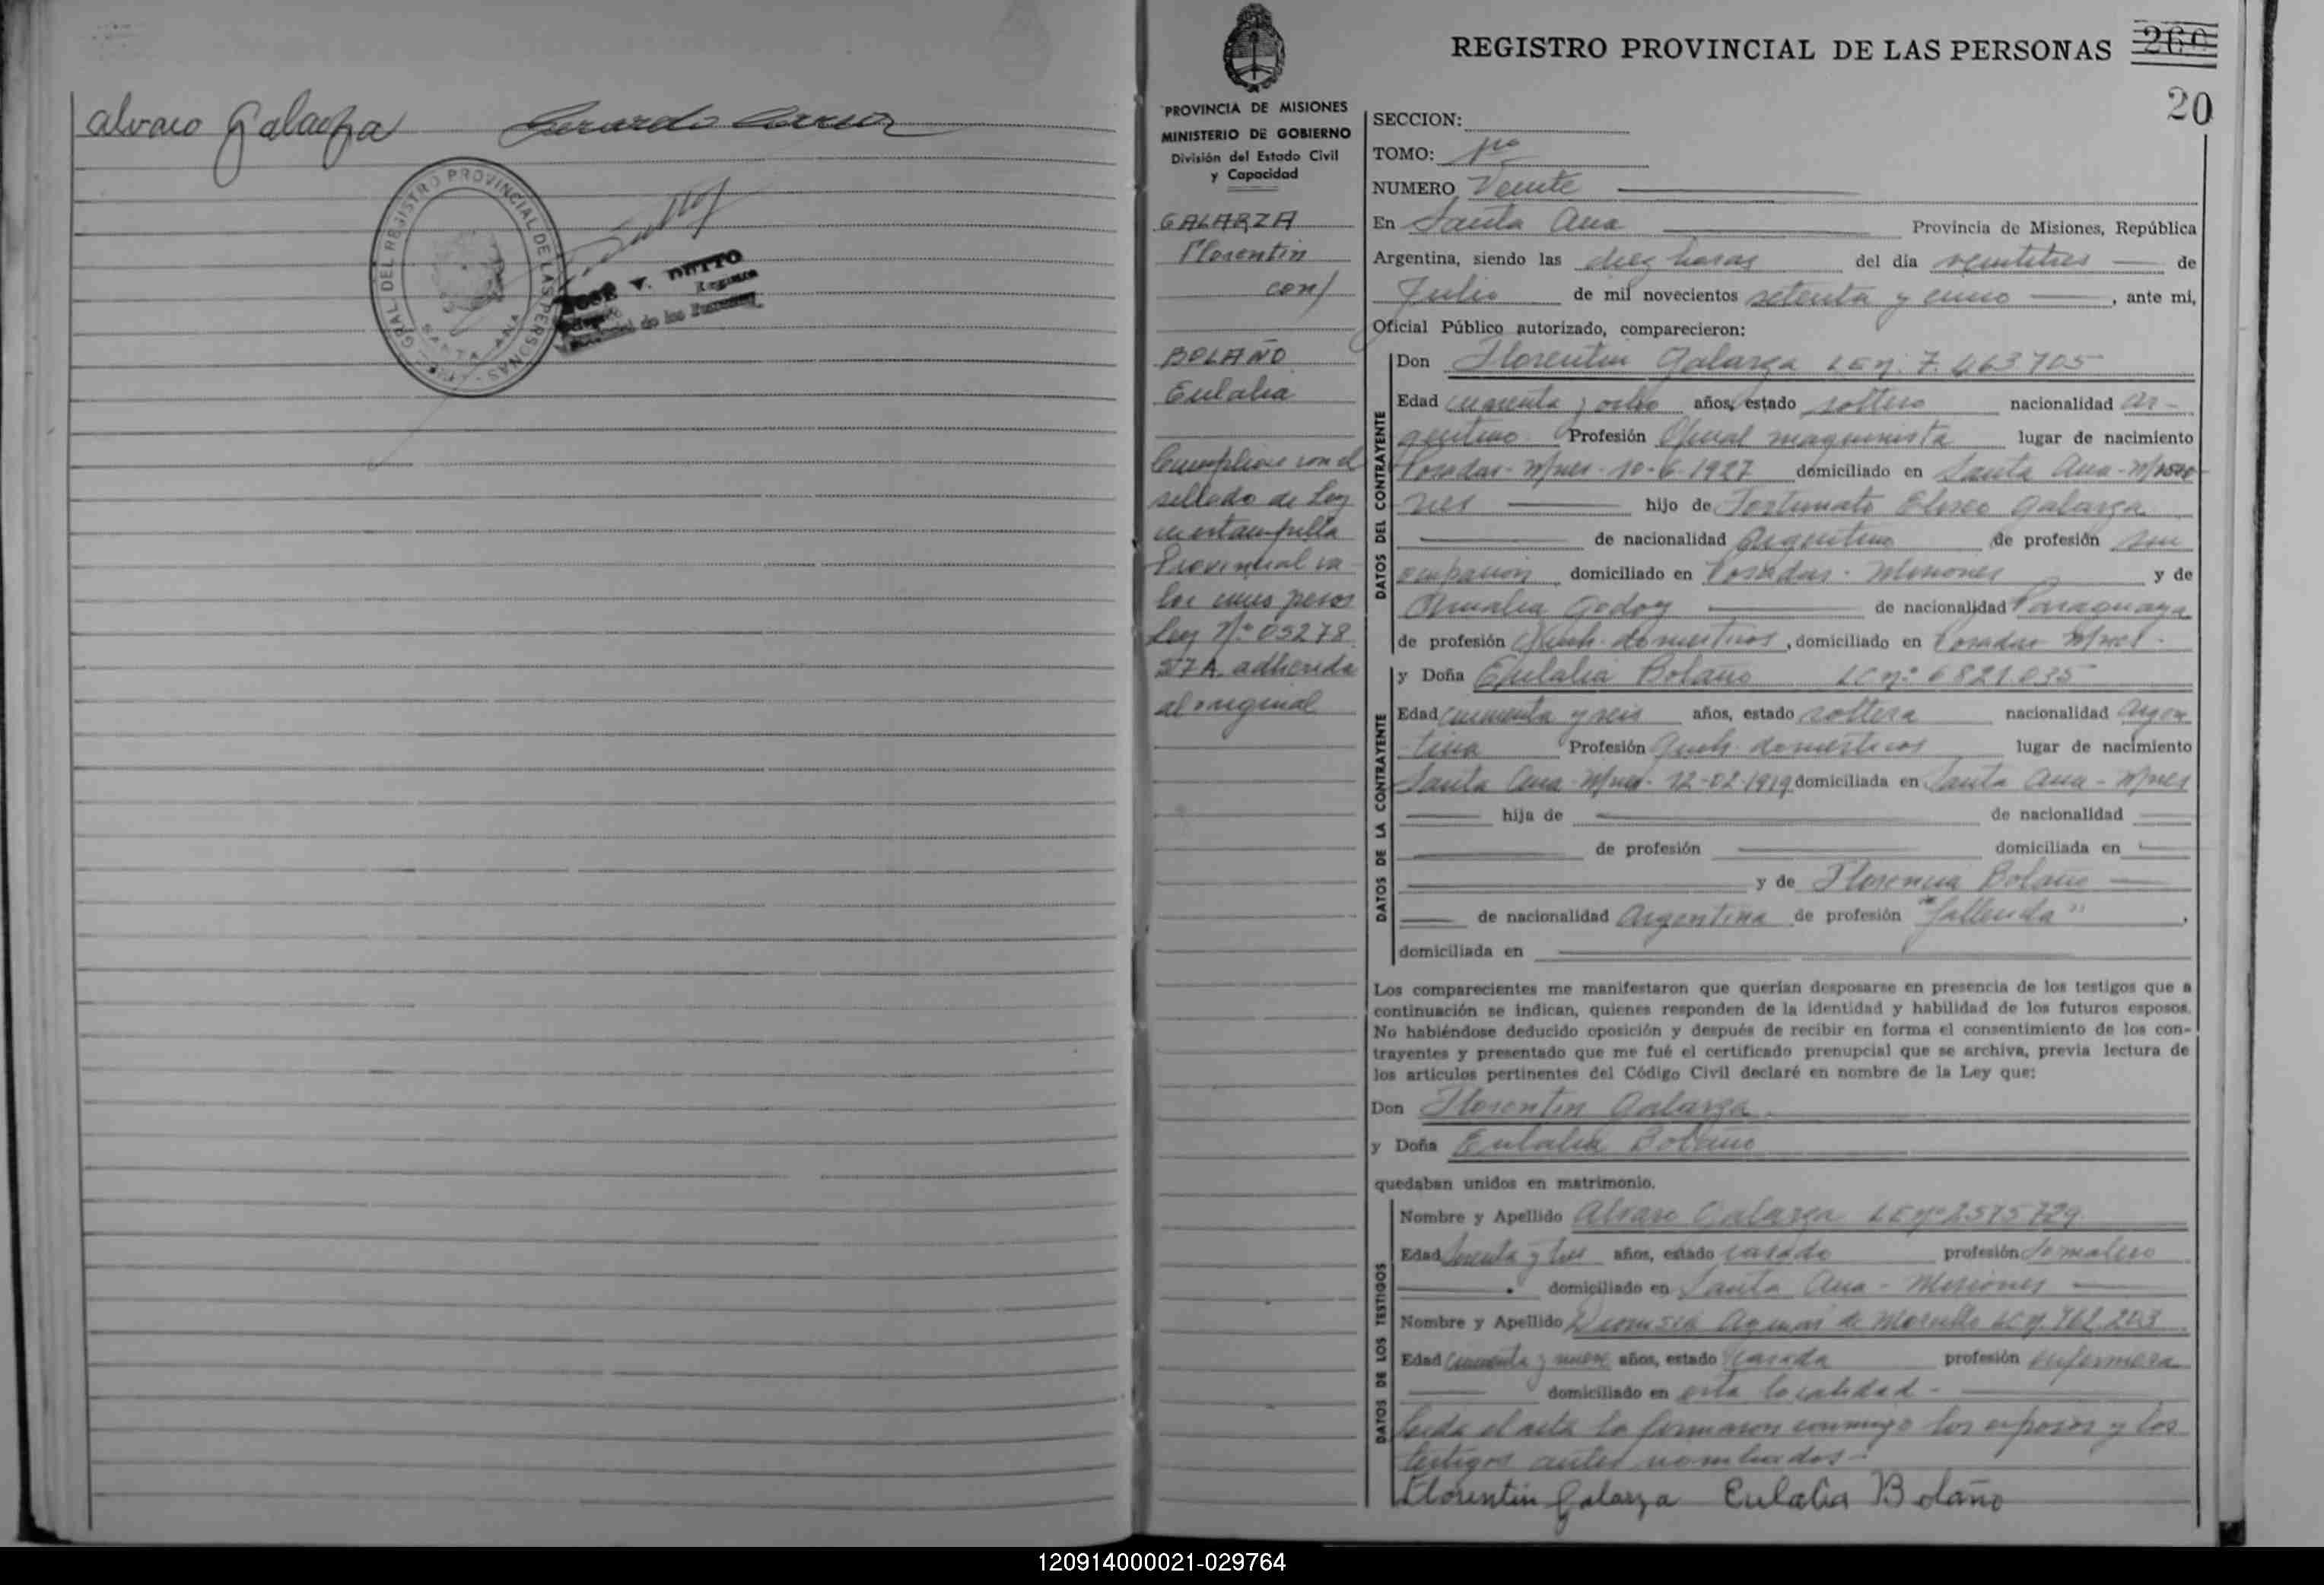 alvaro Galarza Gerardo
REGISTRO PROVINCIAL DE LAS PERSONAS
SANTA ANA
JOSE V. DETTO
de las Personas
REGISTRO PROVINCIAL DE LAS PERSONAS 260
20
PROVINCIA DE MISIONES
MINISTERIO DE GOBIERNO
División del Estado Civil
y Capacidad
GALARZA
Florentin
con/
BOLAÑO
Eulalia
sellado de Ley
en estampilla
Provincial va-
lor pesos
Ley Nº 05278
adherida
al original
SECCION:
TOMO: 1ro
NUMERO Veinte
En Santa Ana Provincia de Misiones, República
Argentina, siendo las diez horas del día veintitres de
Julio de mil novecientos setenta y cinco, ante mi,
Oficial Público autorizado, comparecieron:
DATOS DEL CONTRAYENTE
Don Florentin Galarza LE nº 7.463.705
Edad cuarenta y ocho años, estado soltero nacionalidad ar-
gentino Profesión Oficial maquinista lugar de nacimiento
Posadas-Mnes-10-6-1927 domiciliado en Santa Ana-
nes hijo de Fortunato Eliseo Galarza
de nacionalidad Argentino de profesión sin
ocupacion domiciliado en Posadas-Misiones y de
Amalia Godoy de nacionalidad Paraguaya
de profesión Queh. domesticos, domiciliado en Posadas Mnes-
DATOS DE LA CONTRAYENTE
y Doña Eulalia Bolaño LC nº 6821.035
Edad cincuenta y seis años, estado soltera nacionalidad Argen
tina Profesión Queh. domesticos lugar de nacimiento
Santa Ana-Mnes-12-02-1919 domiciliada en Santa Ana-Mnes
hija de de nacionalidad
de profesión domiciliada en
y de Florencia Bolaño
de nacionalidad Argentina de profesión "fallecida",
domiciliada en
Los comparecientes me manifestaron que querían desposarse en presencia de los testigos que a
continuación se indican, quienes responden de la identidad y habilidad de los futuros esposos.
No habiéndose deducido oposición y después de recibir en forma el consentimiento de los con-
trayentes y presentado que me fué el certificado prenupcial que se archiva, previa lectura de
los artículos pertinentes del Código Civil declaré en nombre de la Ley que:
Don Florentin Galarza
y Doña Eulalia Bolaño
quedaban unidos en matrimonio.
DATOS DE LOS TESTIGOS
Nombre y Apellido Alvaro Galarza LE nº 2575729
Edad y tres años, estado casado profesión Jornalero
domiciliado en Santa Ana-Misiones
Nombre y Apellido Dionisia de LC nº
Edad cincuenta y nueve años, estado casada profesión enfermera
domiciliado en esta localidad-
Leida el acta la firmaron conmigo los esposos y los
testigos antes nombrados-
Florentin Galarza Eulalia Bolaño
120914000021-029764